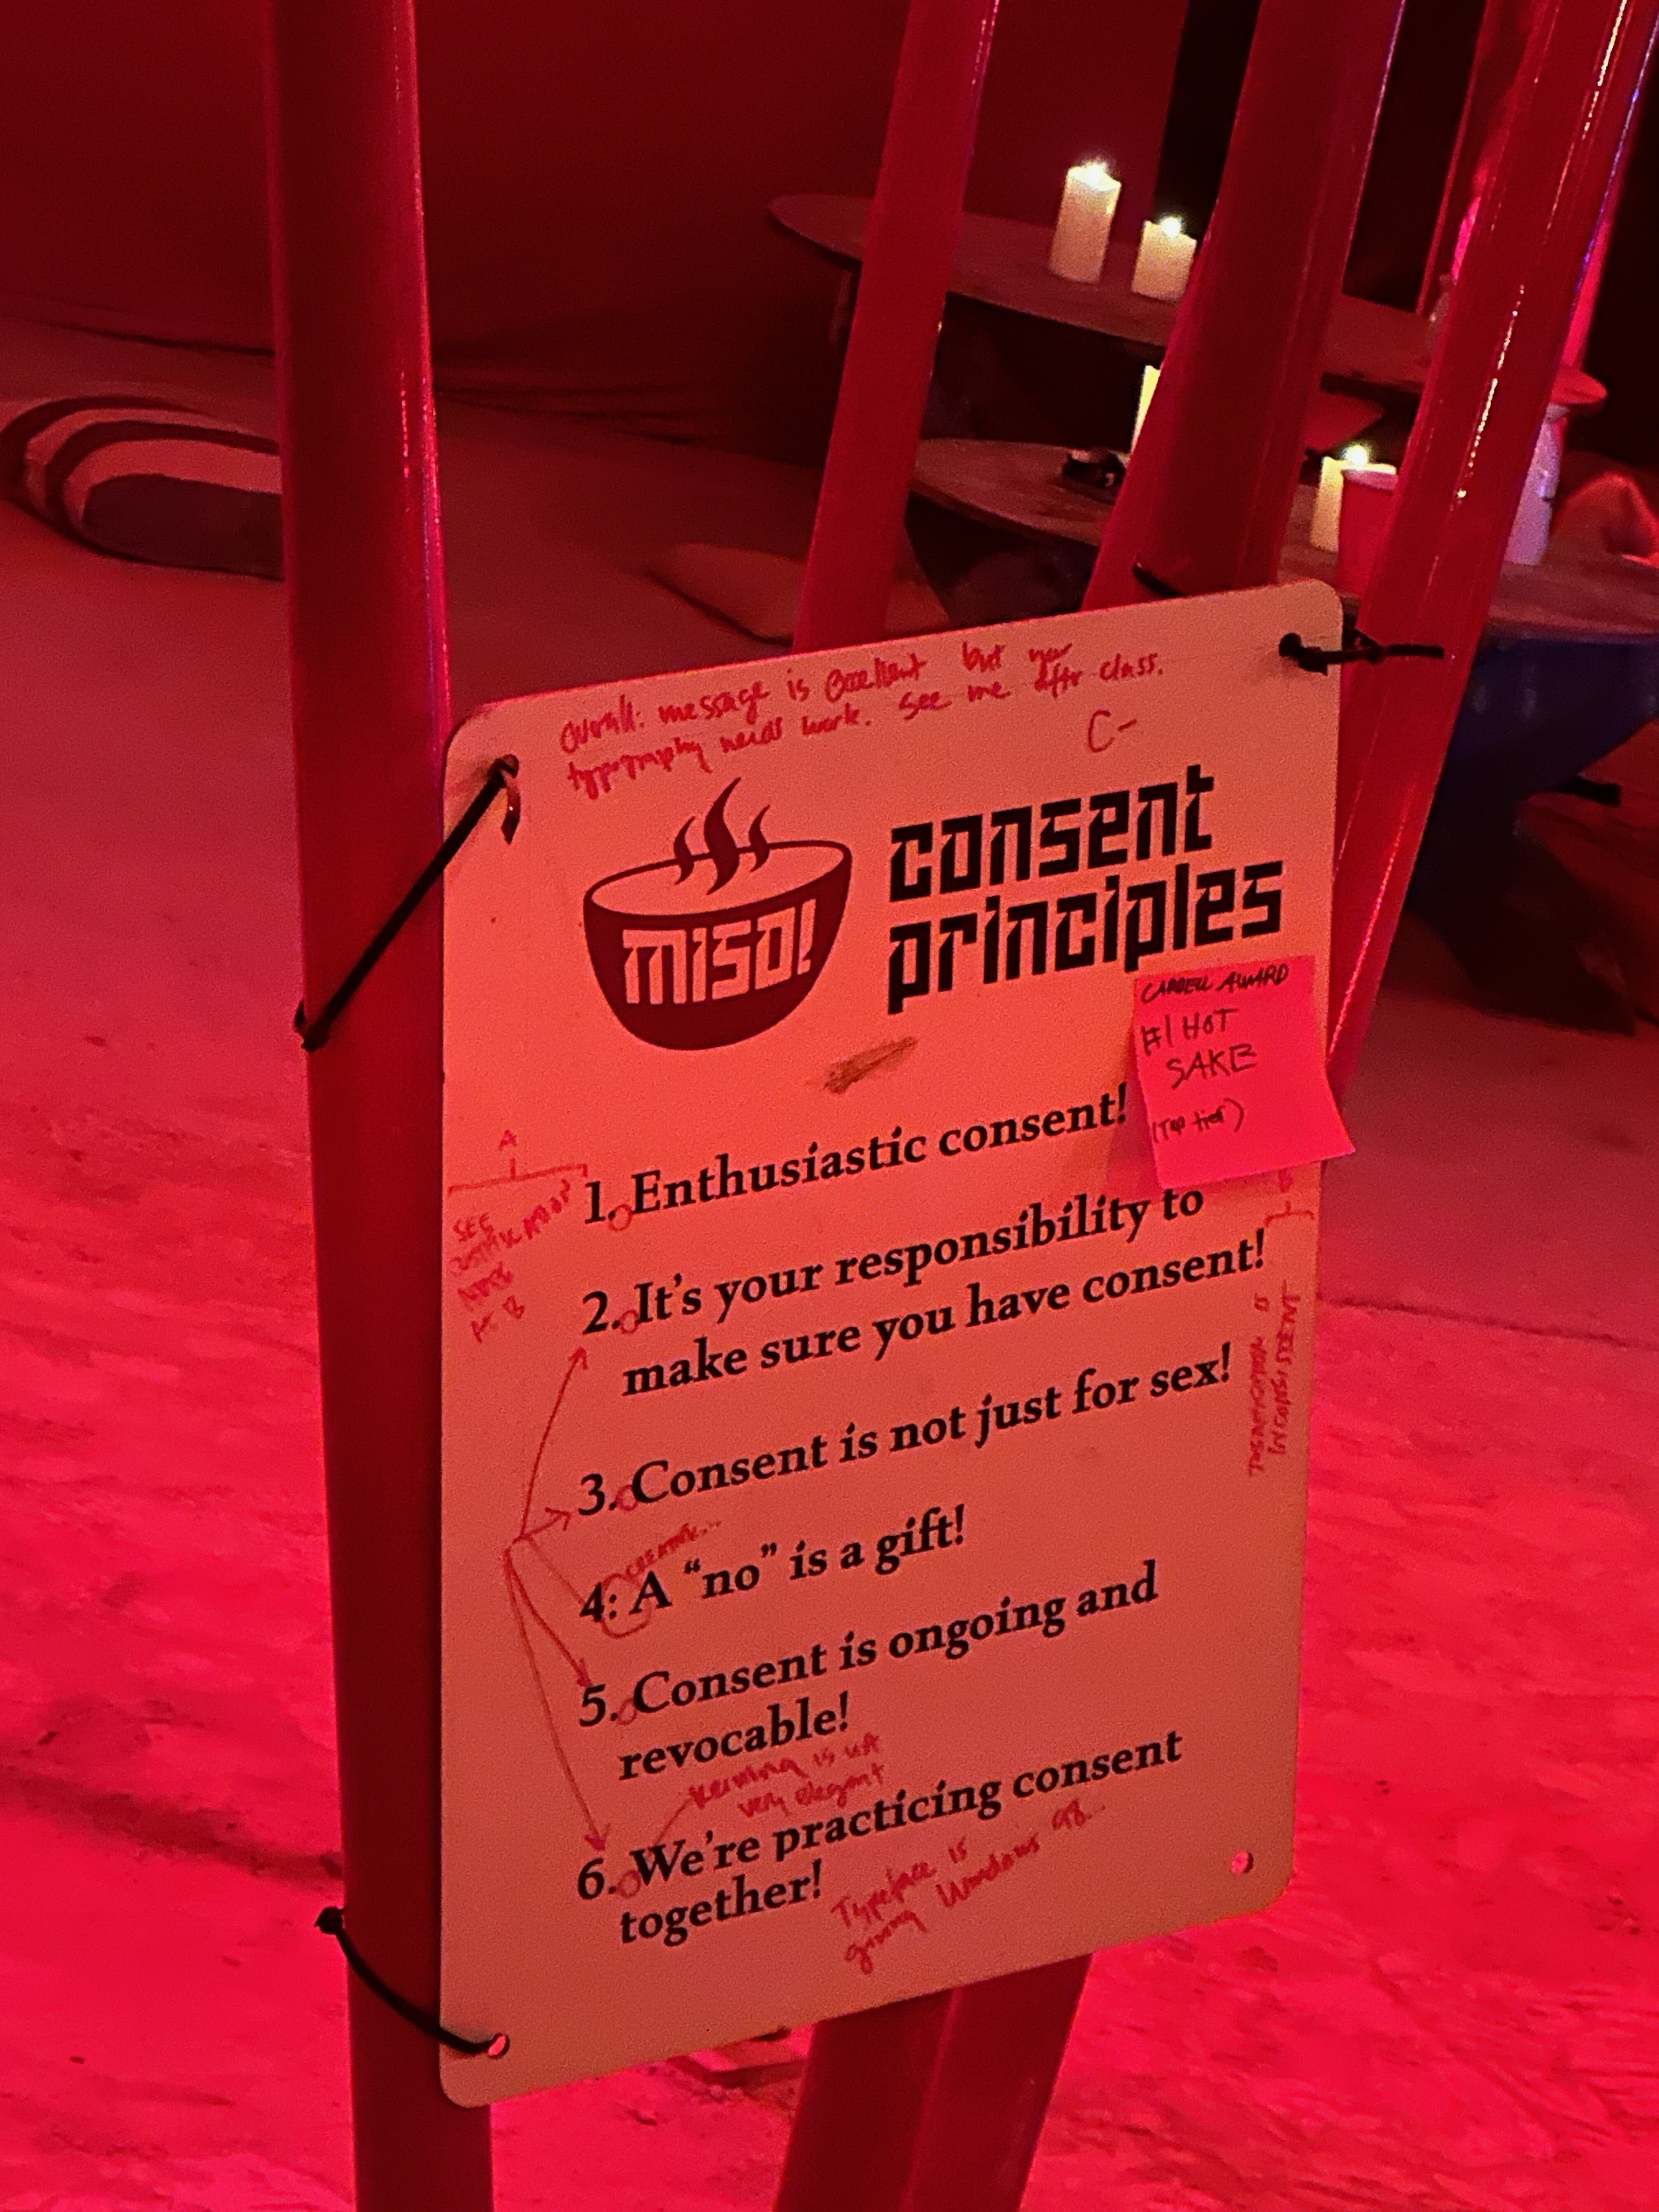 Overall: message is excellent but your
typography needs work. See me after class.
C-
MISO!
consent
principles
CARDELL AWARD
#1 HOT
SAKE
(Top tier)
A
1. Enthusiastic consent!
SEE
JUSTIFICATION
NOTE
PT. B
2. It's your responsibility to
make sure you have consent!
B
JUSTIFICATION IS
INCONSISTENT
3. Consent is not just for sex!
CREATIVE...
4: A “no” is a gift!
5. Consent is ongoing and
revocable!
Kerning is not
very elegant
6. We're practicing consent
together!
Typeface is
giving Windows 98...